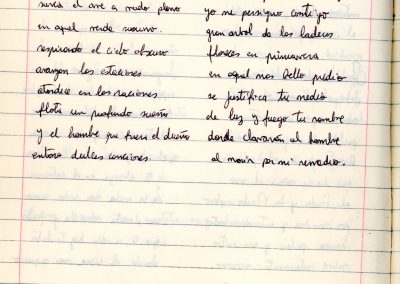 surca el ave a ruedo pleno
en aquel verde sereno.
respirando el cielo obscuro
avanzan las estaciones
atardece en los
flota un profundo sueño
y el hombre que fuera el dueño
entona dulces canciones.
yo me persigno contigo
gran arbol de las laderas
floreces en primavera
en aquel mas bello predio
se justifica tu medio
de luz y fuego tu nombre
donde clavarán al hombre
al morir por mi remedio.